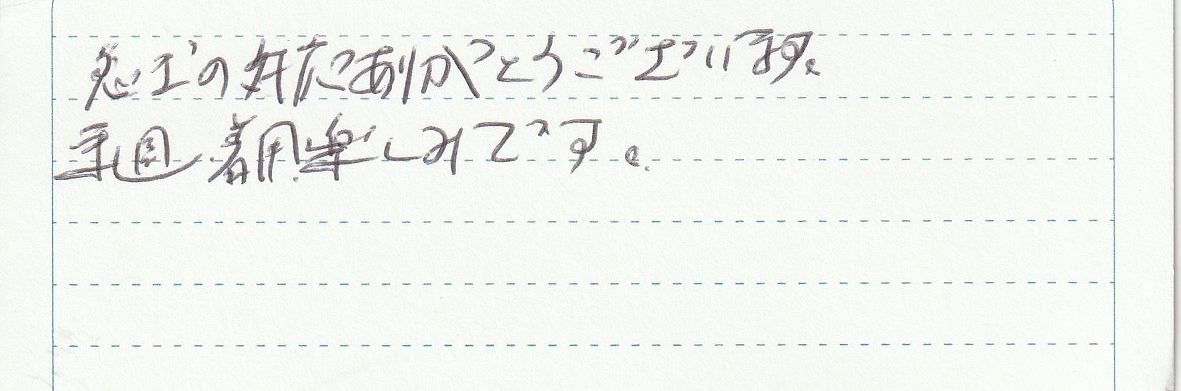 急ぎの対応ありがとうございます。
来週、着用楽しみです。